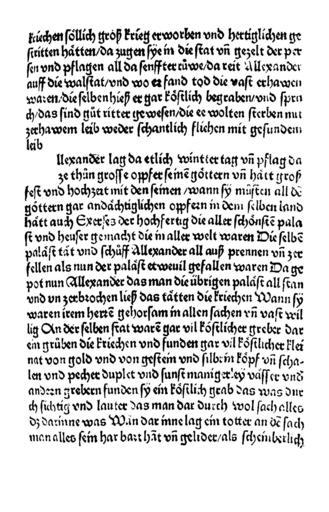 kriechen söllich groß krieg erworben vnd hertiglichen ge
stritten hätten/da zugen sÿe in die stat vñ gezelt der per
sen vnd pflagen all da senffter rüwe/da reit Allexander
auff die walstat/vnd wo er fand tod die vast erhawen
waren/die selben hieß er gar köstlich begraben/vnd sprn
ch/das sind güt ritter gewesen/die ee wolten sterben mit
zerhawem leib weder schantlich fliehen mit gesundem
leib
llexander lag da etlich wintter tag vñ pflag da
ze thün grosse opffer seinē göttern vñ hätt groß
fest vnd hochzat mit den seinen/wann sÿ müsten all dē
göttern gar andächtiglichen oppfern in dem selben land
hätt auch Exerses der hochfertig die aller schönstē pala
st vnd heuser gemacht die in aller welt waren Die selbē
paläst tät vnd schüff Allexander all auß prennen vñ zer
fellen als nun der paläst etweuil gefallen waren Da ge
pot nun Allexander das man die übrigen paläst all stan
vnd vn zerbrochen ließ das tätten die kriechen Wann sÿ
waren irem herrē gehorsam in allen sachen vñ vast wil
lig In der selben stat warē gar vil köstlicher greber dar
ein grüben die kriechen vnd funden gar vil köstlicher klei
nat von gold vnd von gestein vnd silbrin köpf vñ scha
len vnd pecher duplet vnd sunst maniger ley vässer vnd
andern grebern funden sÿ ein köstlich grab das was dur
ch sichtig vnd lauter das man dar durch wol sach alles
dz darinne was Wan dar inne lag ein totter an dē sach
man alles sein har bart hāt vñ gelider/als scheinberlich